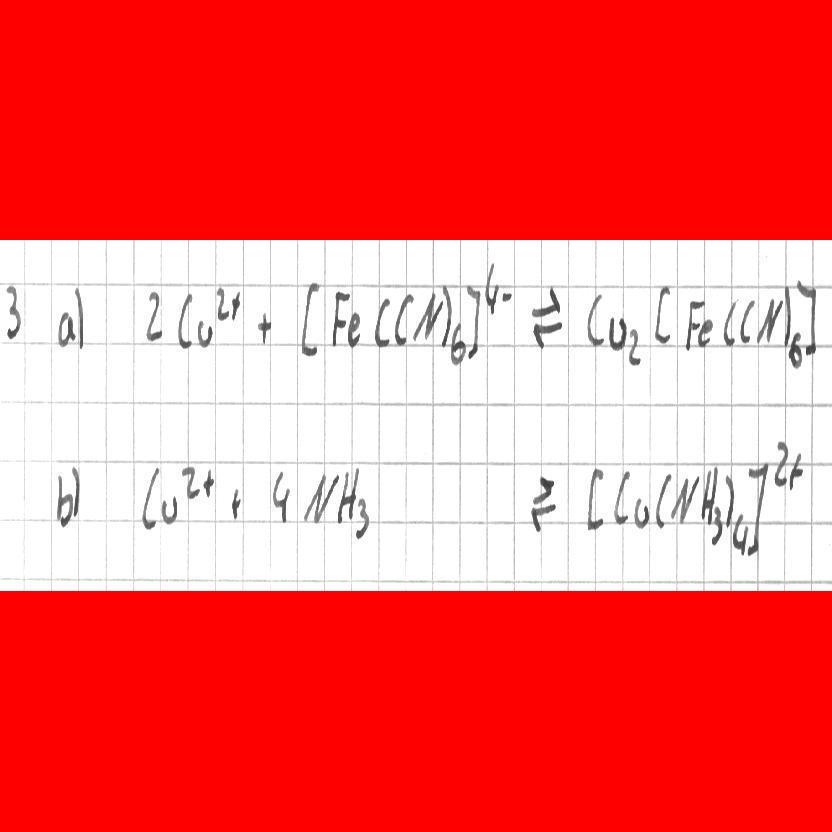 3 a) 2 Cu²⁺ + [Fe(CN)₆]⁴⁻ ⇌ Cu₂[Fe(CN)₆]
b) Cu²⁺ + 4 NH₃ ⇌ [Cu(NH₃)₄]²⁺